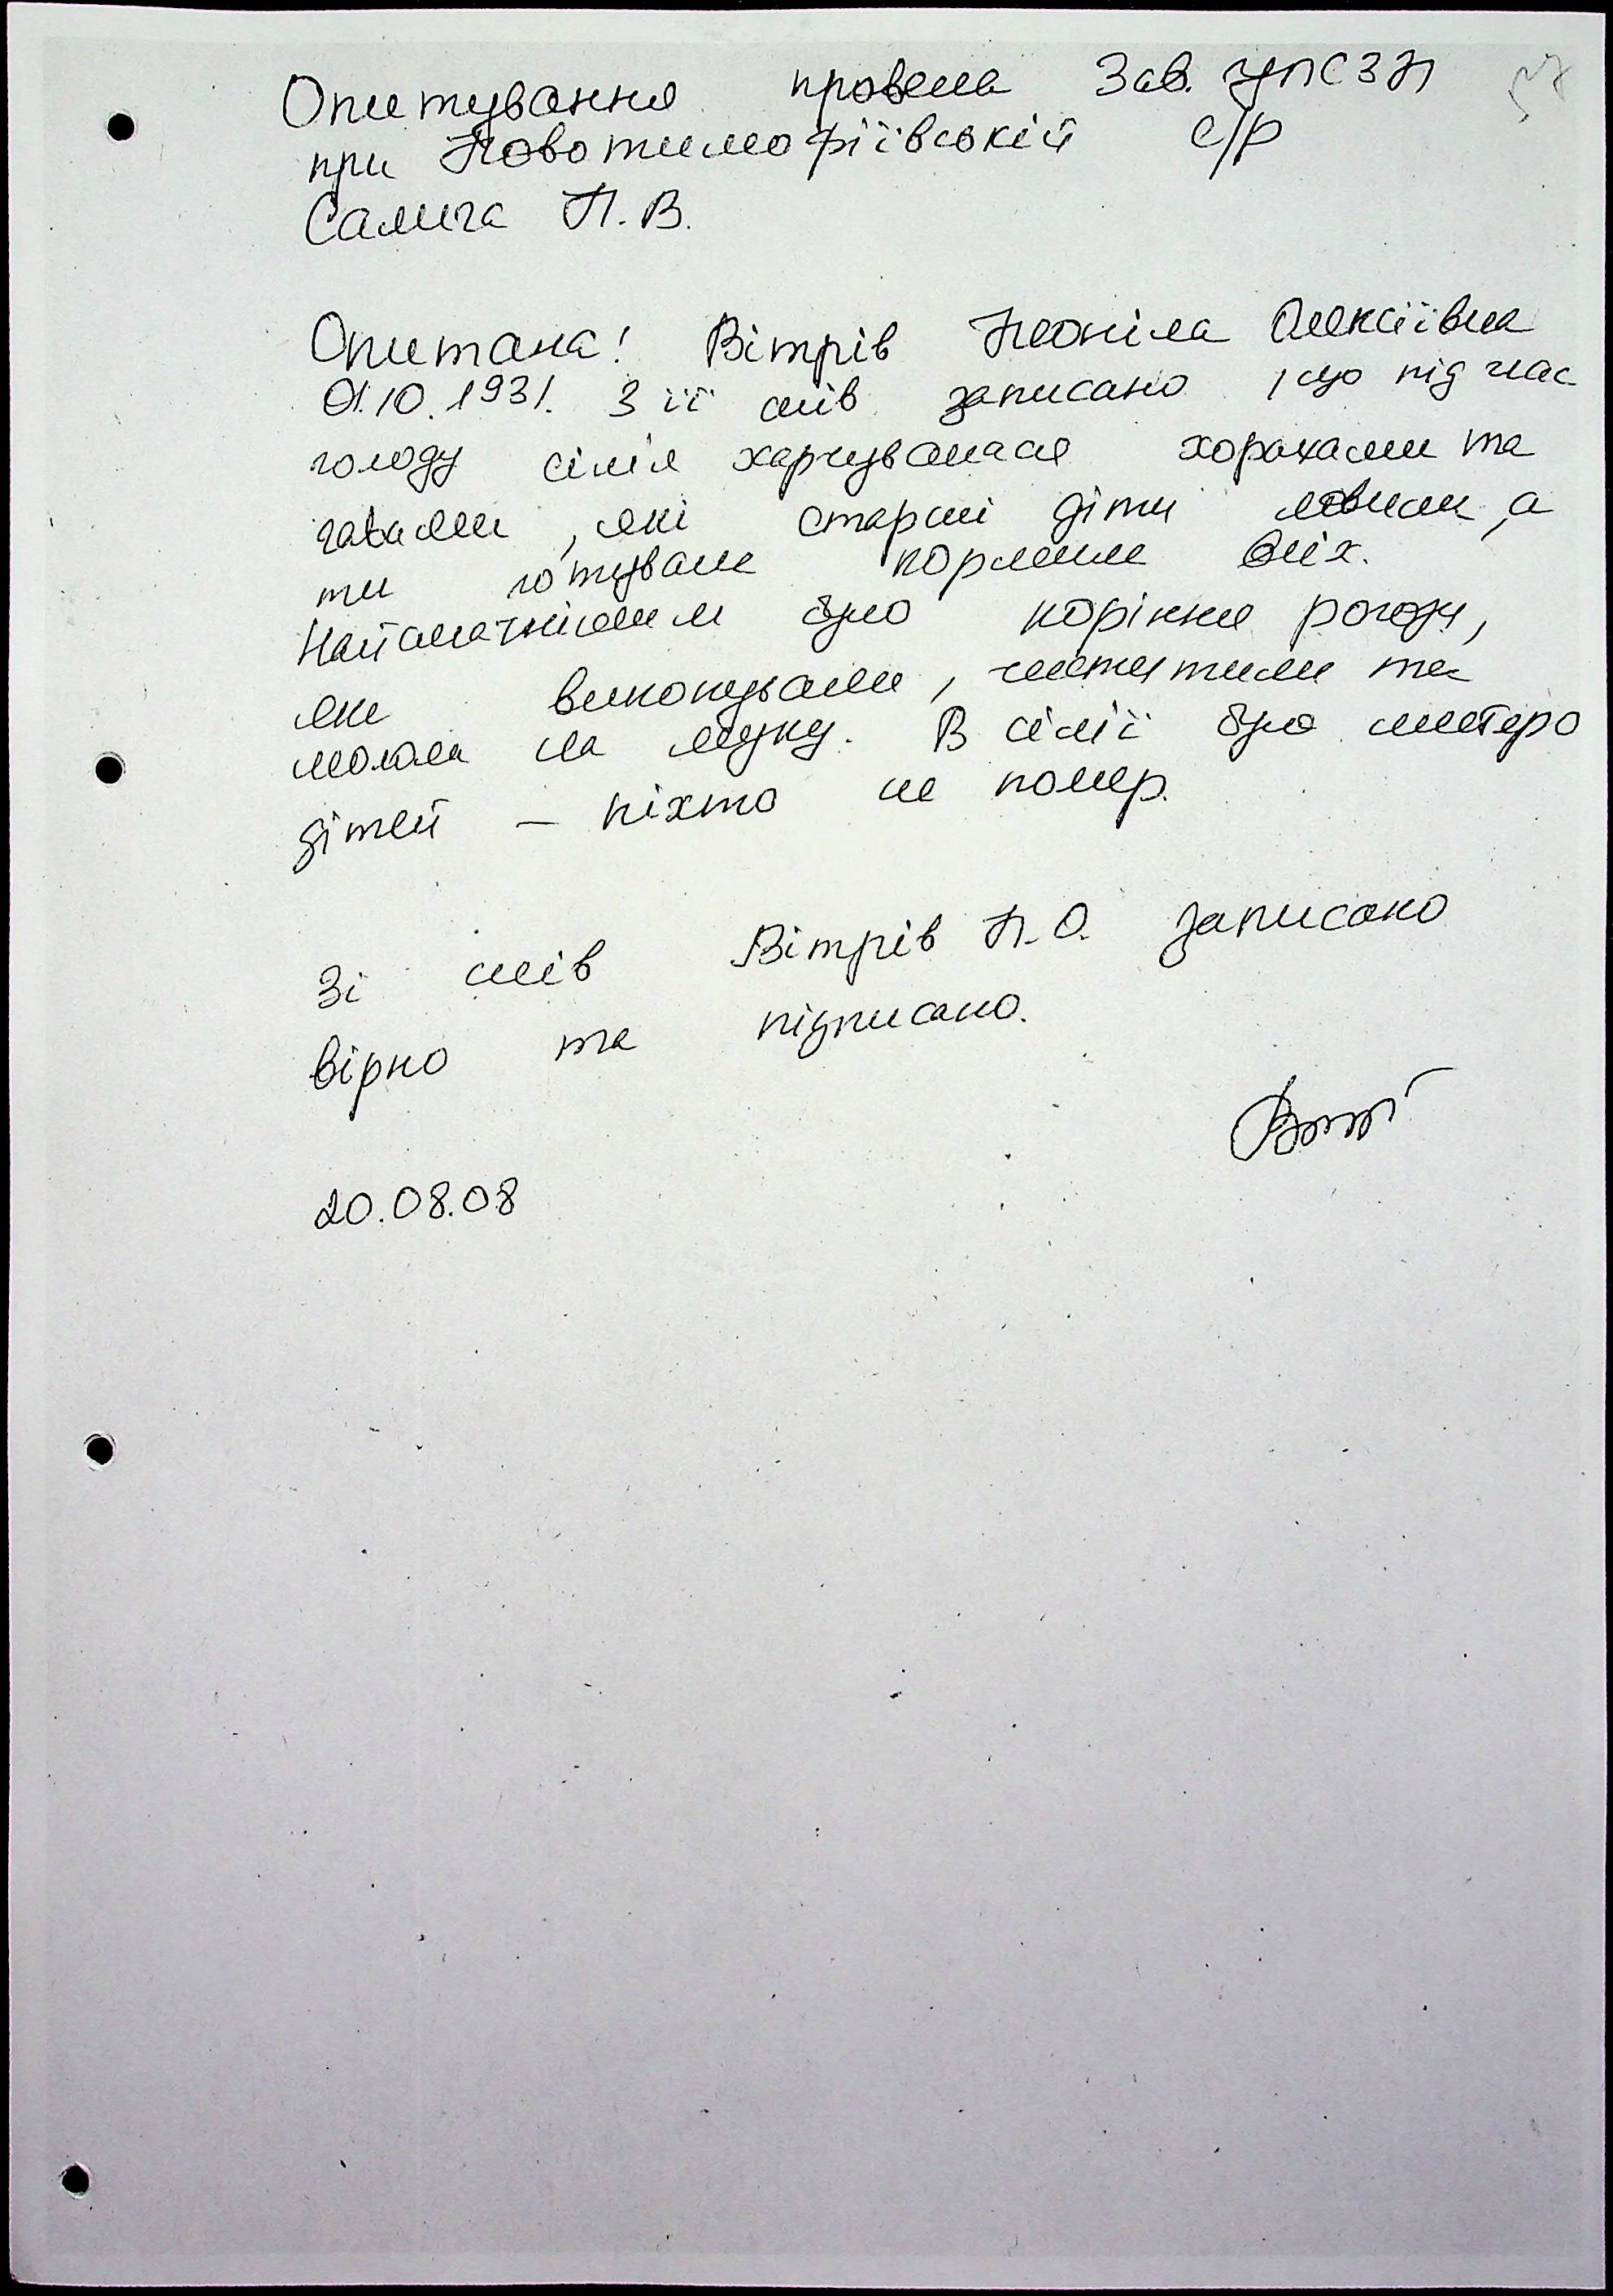 Опитування провела Зав. УПСЗН
при Новотимофіївській с/р
Салига П. В.
Опитана: Вітрів Неоніла Олексіївна
01.10.1931. З її слів записано, що під час
голоду сім'я харчувалася ховрахами та
гавами, які старші діти ловили, а
ми готували кормили всіх.
Найсмачнішим було коріння рогозу,
яке викопували, чистили та
мололи на муку. В сім'ї було шестеро
дітей – ніхто не помер.
Зі слів Вітрів Н.О. записано
вірно та підписано.
20.08.08